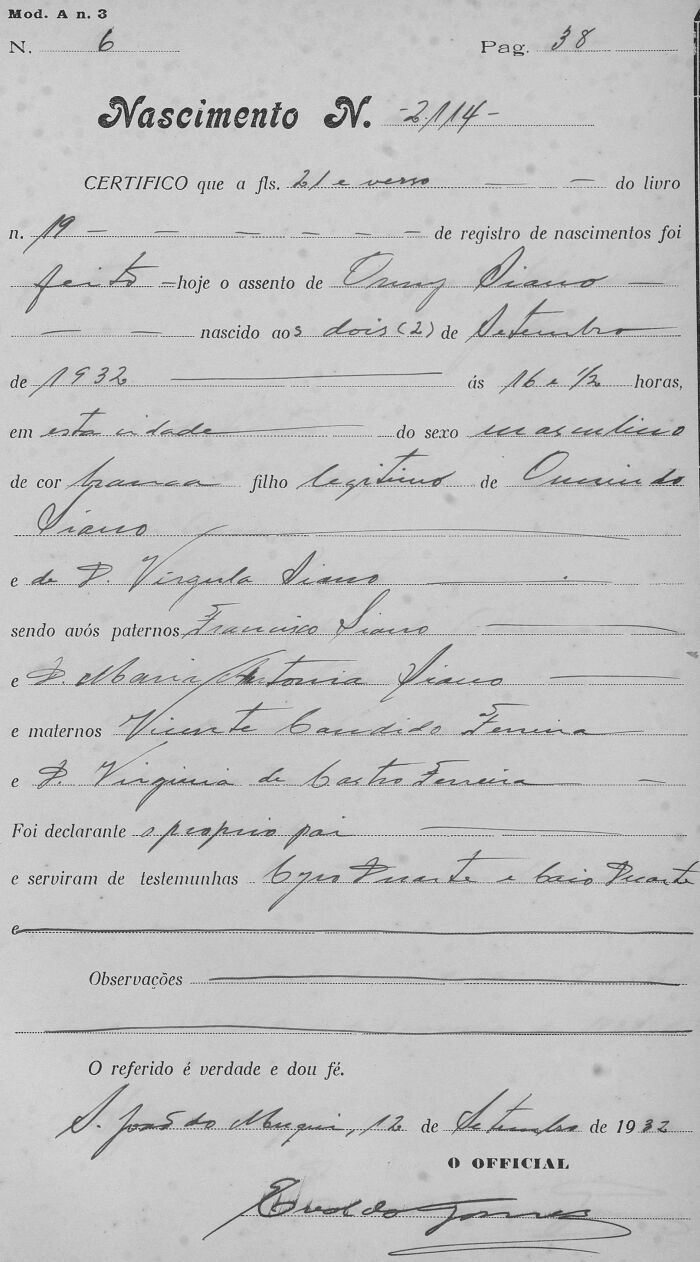 Mod. A n. 3
N. 6 Pag. 38
Nascimento N. -2,114-
CERTIFICO que a fls. 21 e verso do livro
n. 19 de registro de nascimentos foi
feito hoje o assento de Siano
nascido aos dois (2) de Setembro
de 1932 ás 16 e 1/2 horas,
em esta cidade do sexo masculino
de cor branca filho legitimo de
Siano
e de D. Virgula Siano
sendo avós paternos Francisco Siano
e D. Maria Antonia Siano
e maternos Vicente Candido Ferreira
e D. Virginia de Castro Ferreira
Foi declarante o proprio pai
e serviram de testemunhas Cyro Duarte e Caio Duarte
e
Observações
O referido é verdade e dou fé.
S. João do Muqui, 12 de Setembro de 1932
O OFFICIAL
Gomes